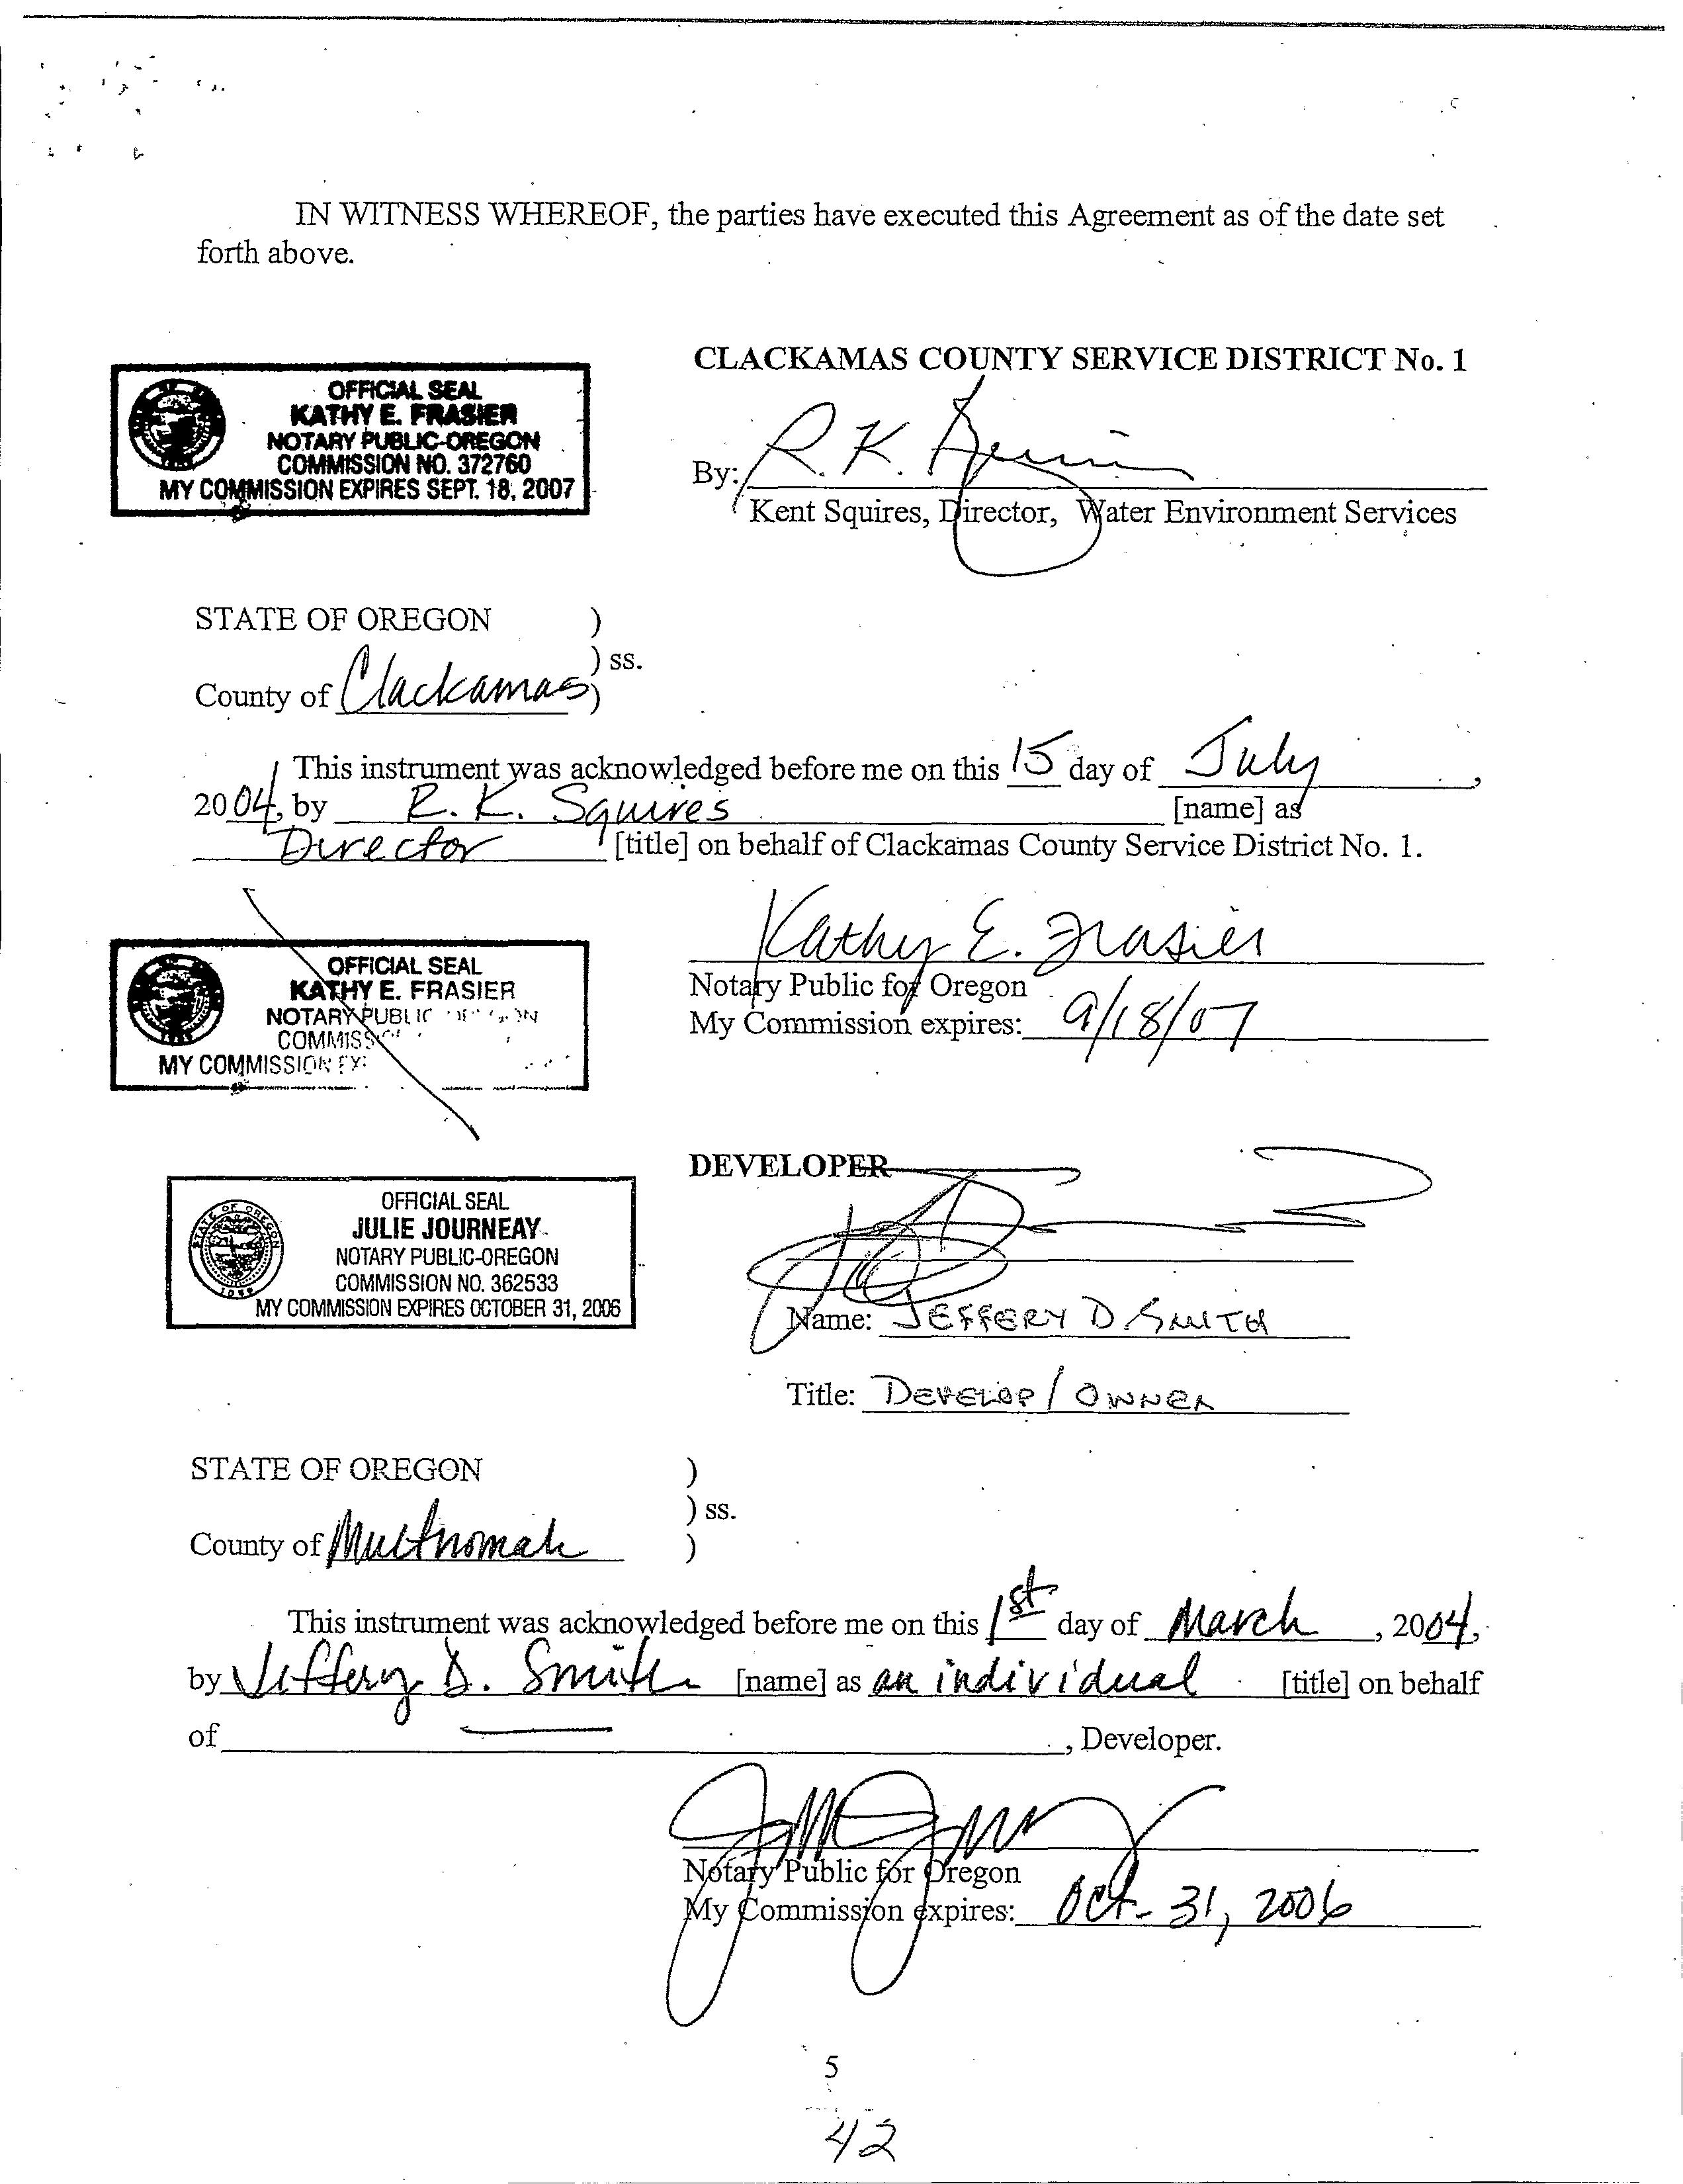 IN WITNESS WHEREOF, the parties have executed this Agreement as of the date set
forth above.
CLACKAMAS COUNTY SERVICE DISTRICT No. 1
OFFICIAL SEAL
KATHY E. FRASIER
NOTARY PUBLIC-OREGON
COMMISSION NO. 372760
MY COMMISSION EXPIRES SEPT. 18, 2007
By: R. K.
Kent Squires, Director, Water Environment Services
STATE OF OREGON )
) ss.
County of Clackamas )
This instrument was acknowledged before me on this 15 day of July,
2004, by R. K. Squires [name] as
Director [title] on behalf of Clackamas County Service District No. 1.
Kathy E. Frasier
Notary Public for Oregon
My Commission expires: 9/18/07
OFFICIAL SEAL
KATHY E. FRASIER
NOTARY PUBLIC
MY COMMISSION
DEVELOPER
OFFICIAL SEAL
JULIE JOURNEAY
NOTARY PUBLIC-OREGON
COMMISSION NO. 362533
MY COMMISSION EXPIRES OCTOBER 31, 2006
STATE OF OREGON
1859
Name: JEFFERY D. SMITH
Title: DEVELOP / OWNER
STATE OF OREGON )
) ss.
County of Multnomah )
This instrument was acknowledged before me on this 1st day of March, 2004,
by Jeffery D. Smith [name] as an individual [title] on behalf
of , Developer.
Notary Public for Oregon
My Commission expires: Oct. 31, 2006
5
42